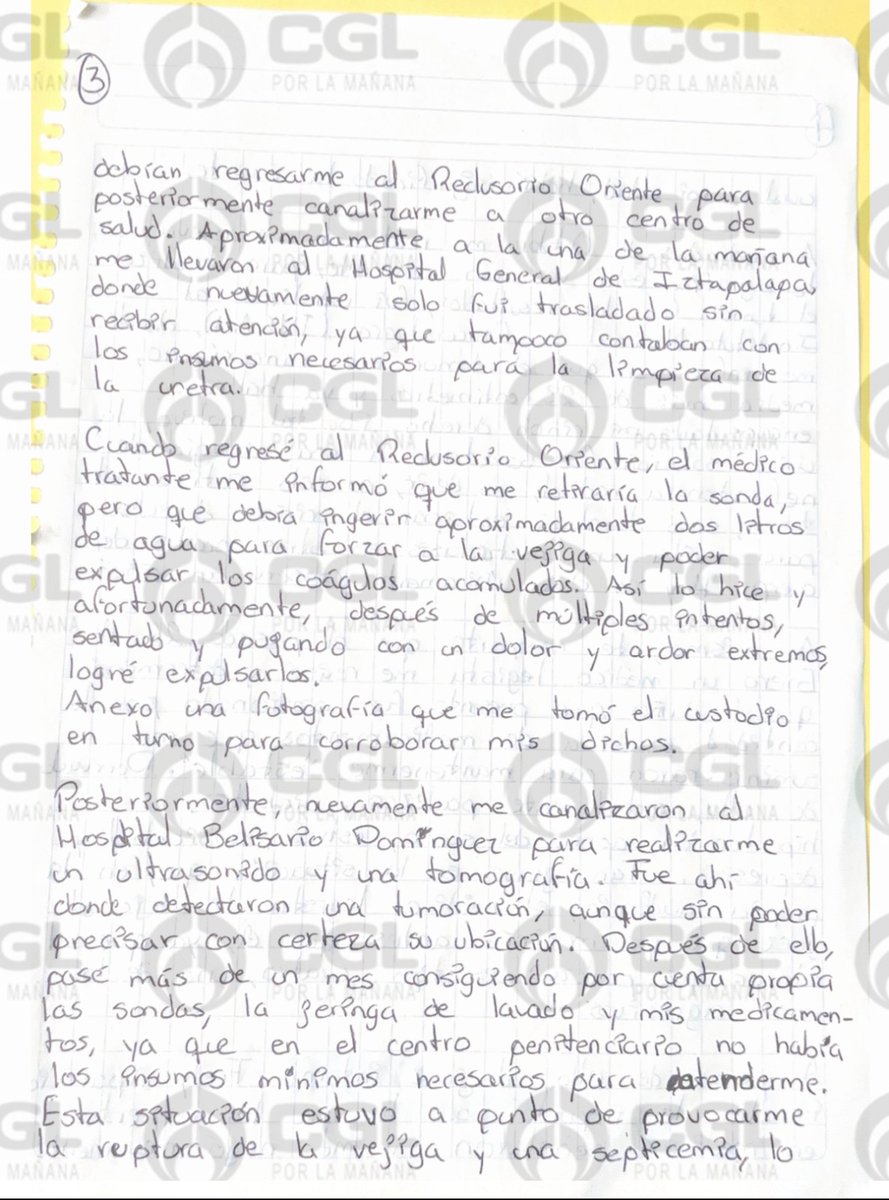 CGL
POR LA MAÑANA
3
debían regresarme al Reclusorio Oriente para
posteriormente canalizarme a otro centro de
salud. Aproximadamente a la una de la mañana
me llevaron al Hospital General de Iztapalapa,
donde nuevamente solo fui trasladado sin
recibir atención, ya que tampoco contaban con
los insumos necesarios para la limpieza de
la uretra.
Cuando regresé al Reclusorio Oriente, el médico
tratante me informó que me retiraría la sonda,
pero que debía ingerir aproximadamente dos litros
de agua para forzar a la vejiga y poder
expulsar los coágulos acumulados. Así lo hice y
afortunadamente, después de múltiples intentos,
sentado y pugando con un dolor y ardor extremos,
logré expulsarlos.
Anexo una fotografía que me tomó el custodio
en turno para corroborar mis dichos.
Posteriormente, nuevamente me canalizaron al
Hospital Belisario Domínguez para realizarme
un ultrasonido y una tomografía. Fue ahí
donde detectaron una tumoración, aunque sin poder
precisar con certeza su ubicación. Después de ello,
pasé más de un mes consiguiendo por cuenta propia
las sondas, la jeringa de lavado y mis medicamen-
tos, ya que en el centro penitenciario no había
los insumos mínimos necesarios para atenderme.
Esta situación estuvo a punto de provocarme
la ruptura de la vejiga y una septicemia, lo